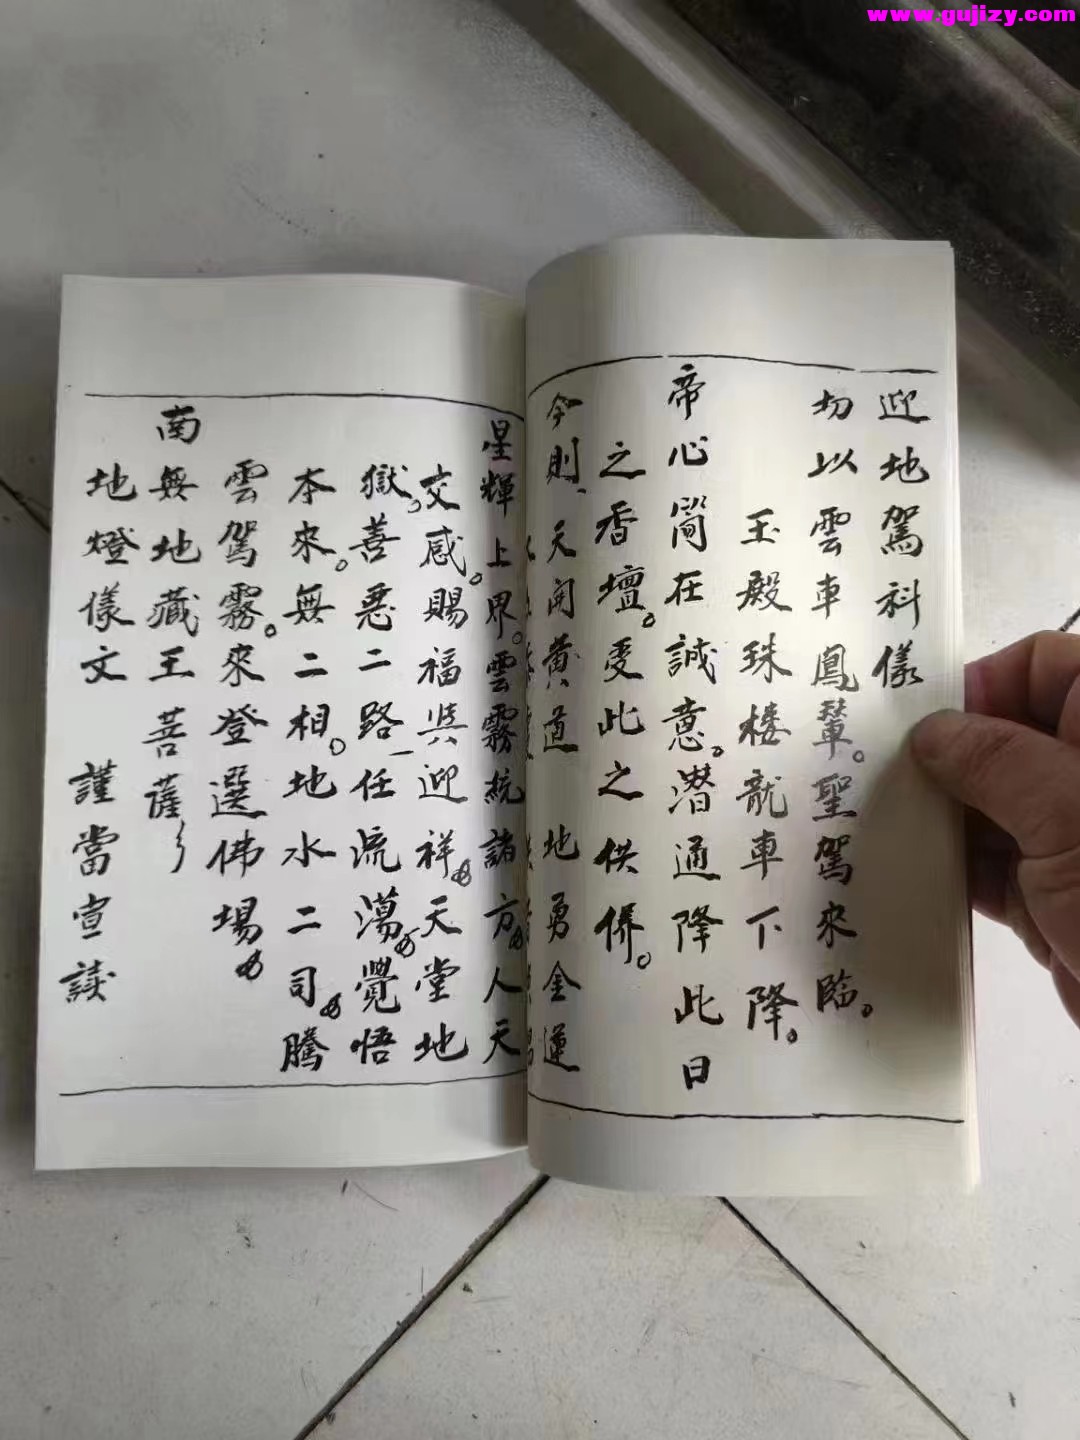 www.gujizy.com
迎地駕科儀
切以雲車鳳輦。聖駕來臨。
玉殿珠楼龍車下降。
帝心簡在誠意。潜通降此日
之香壇。受此之供俻。
今則、天開黄道 地勇金蓮
星輝上界。雲霧統諸方。人天
交感。賜福與迎祥。天堂地
獄。善悪二路一任流蕩。覺悟
本來。無二相。地水二司。騰
雲駕霧。來登選佛場。
南無地藏王菩薩
地燈儀文 謹當宣讀